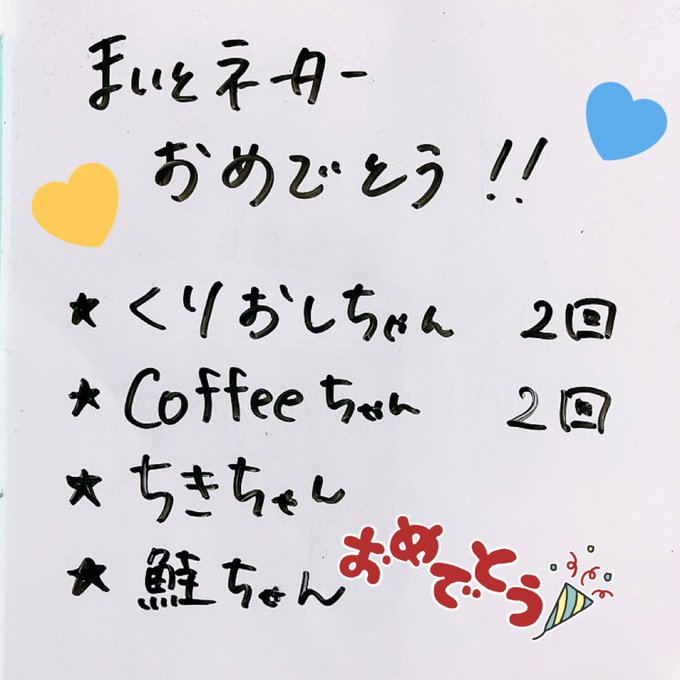 まいとネター
おめでとう!!
★くりおしちゃん 2回
★Coffeeちゃん 2回
★ちきちゃん
★鮭ちゃん
おめでとう